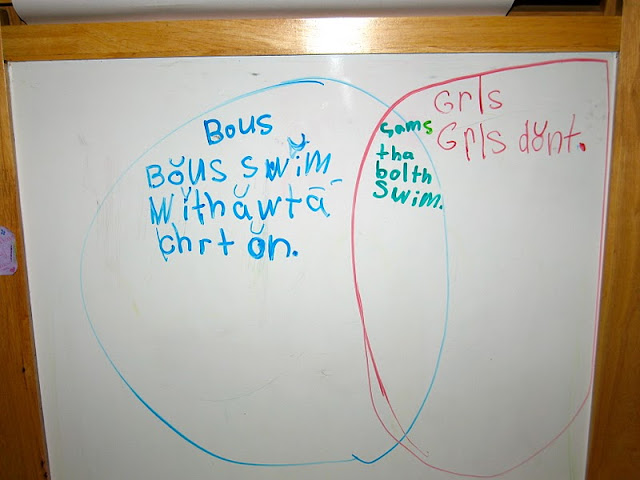 Bous
Bŏus swĭm
Wĭthăwtā
chrt ŏn.
sams
tha
bolth
Swim.
Grls
Grls dŏnt.